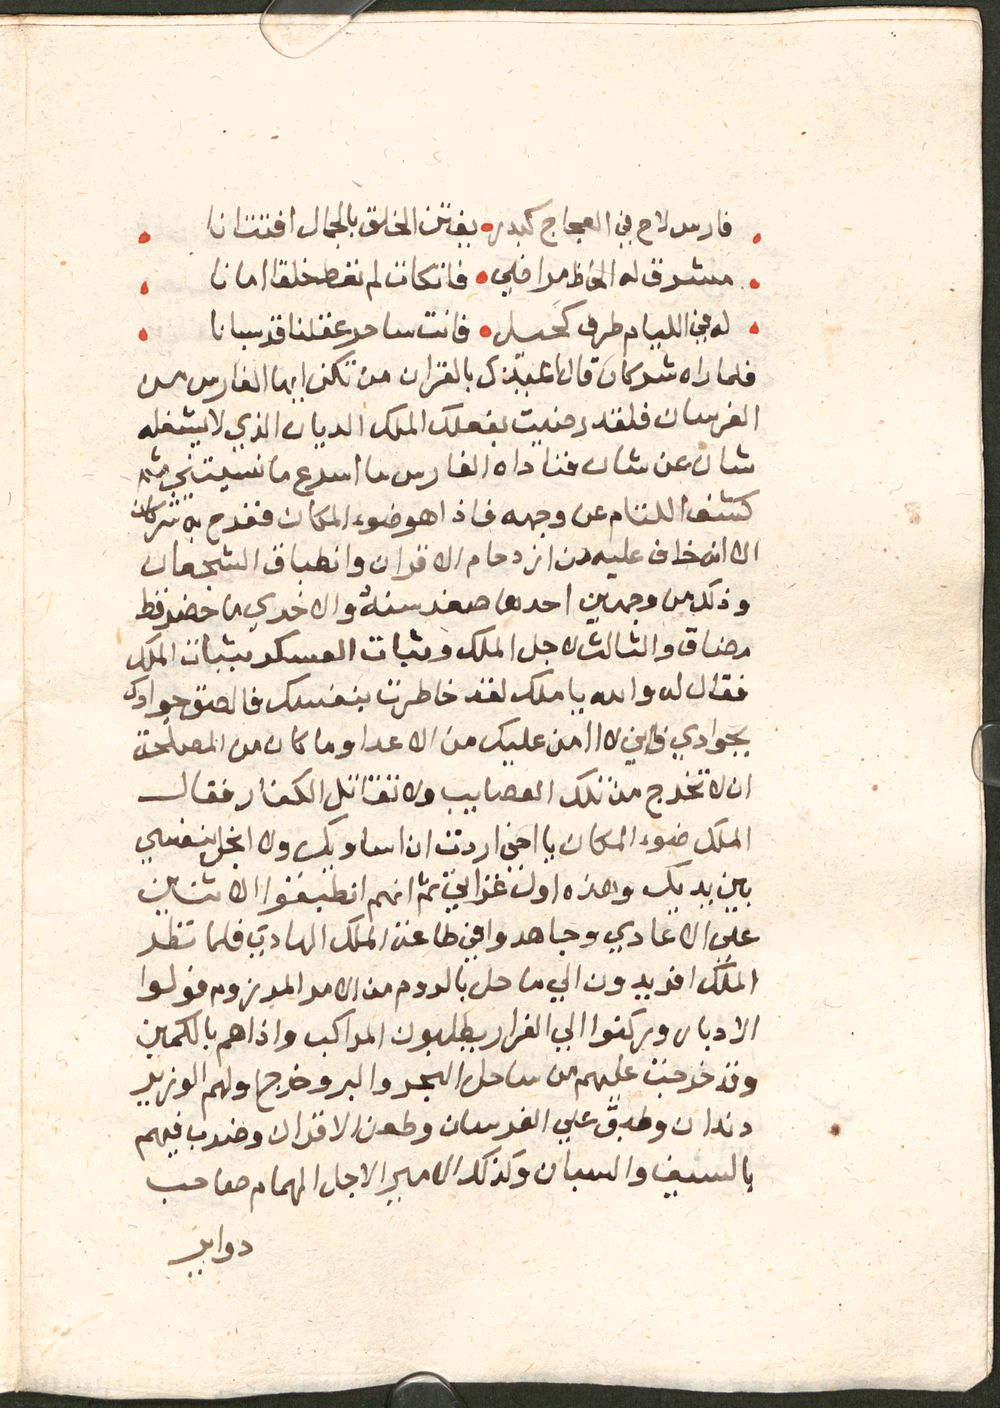 فارس لاح في العجاج كبدر • يفتن الخلق بالجمال افتتانا
مشرق له الحاظ مراضي • فاتكات لم تعط خلقا امانا
له في اللثام طرف كحيل • فانت ساحر عقلنا قد سبانا
فلما راه شركان قال اعيذك بالقران من تكن ايها الفارس من
الفرسان فلقد رضيت بفعلك الملك الديان الذي لا يشغله
شان عن شان فناداه الفارس ما اسرع ما نسيتني ثم
كشف اللثام عن وجهه فاذا هو ضوء المكان ففرح به شركان
الا انه خاف عليه من ازدحام الاقران وانطباق الشجعان
وذلك من وجهين احدها صغر سنة والاخري ما حضر قط
مصاف والثالث لاجل الملك وثبات العسكر بثبات الملك
فقال له والله يا ملك لقد خاطرت بنفسك فالصق جوادك
بجوادي فاني لا اامن عليك من الاعدا وما كان من المصلحة
ان لا تخرج من تلك العصايب ولا تقاتل الكفار فقال
الملك ضوء المكان يا اخي اردت ان اساويك ولا ابخل بنفسي
بين يديك وهذه اول غزاتي ثم انهم انطبقوا الاثنين
علي الاعادي وجاهدوا في طاعة الملك الهادي فلما نظر
الملك افريدون الي ما حل بالروم من الامر المرزوم فولوا
الادبار وركنوا الي الفرار يطلبون المراكب واذا هم بالكمين
وقد خرجت عليهم من ساحل البحر والبر وخرج اولهم الوزير
دندان وطبق علي الفرسان وطعن الاقران وضرب فيهم
بالسيف والسنان وكذلك الامير الاجل الهمام صاحب
دواير